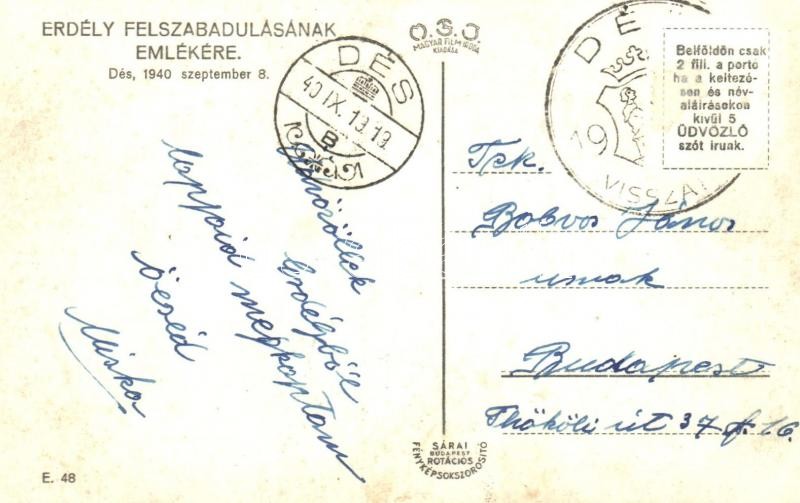 ERDÉLY FELSZABADULÁSÁNAK
EMLÉKÉRE.
Dés, 1940 szeptember 8.
O.S.J.
MAGYAR FILM IRODA
KIADÁSA
DÉS
40 IX. 19. 19
B
DÉS
19
VISSZA
Belföldön csak
2 fill. a porto
ha a keltezé-
sen és név-
aláirásokon
kivül 5
ÜDVÖZLŐ
szót irunk.
Erdélyből
lapjaid megkaptam
Öcséd
Miska
Tek.
Bobvos János
urnak
Budapest
Thököli út 37 f. 16.
SÁRAI
BUDAPEST
ROTÁCIÓS
FÉNYKÉPSOKSZOROSITÓ
E. 48